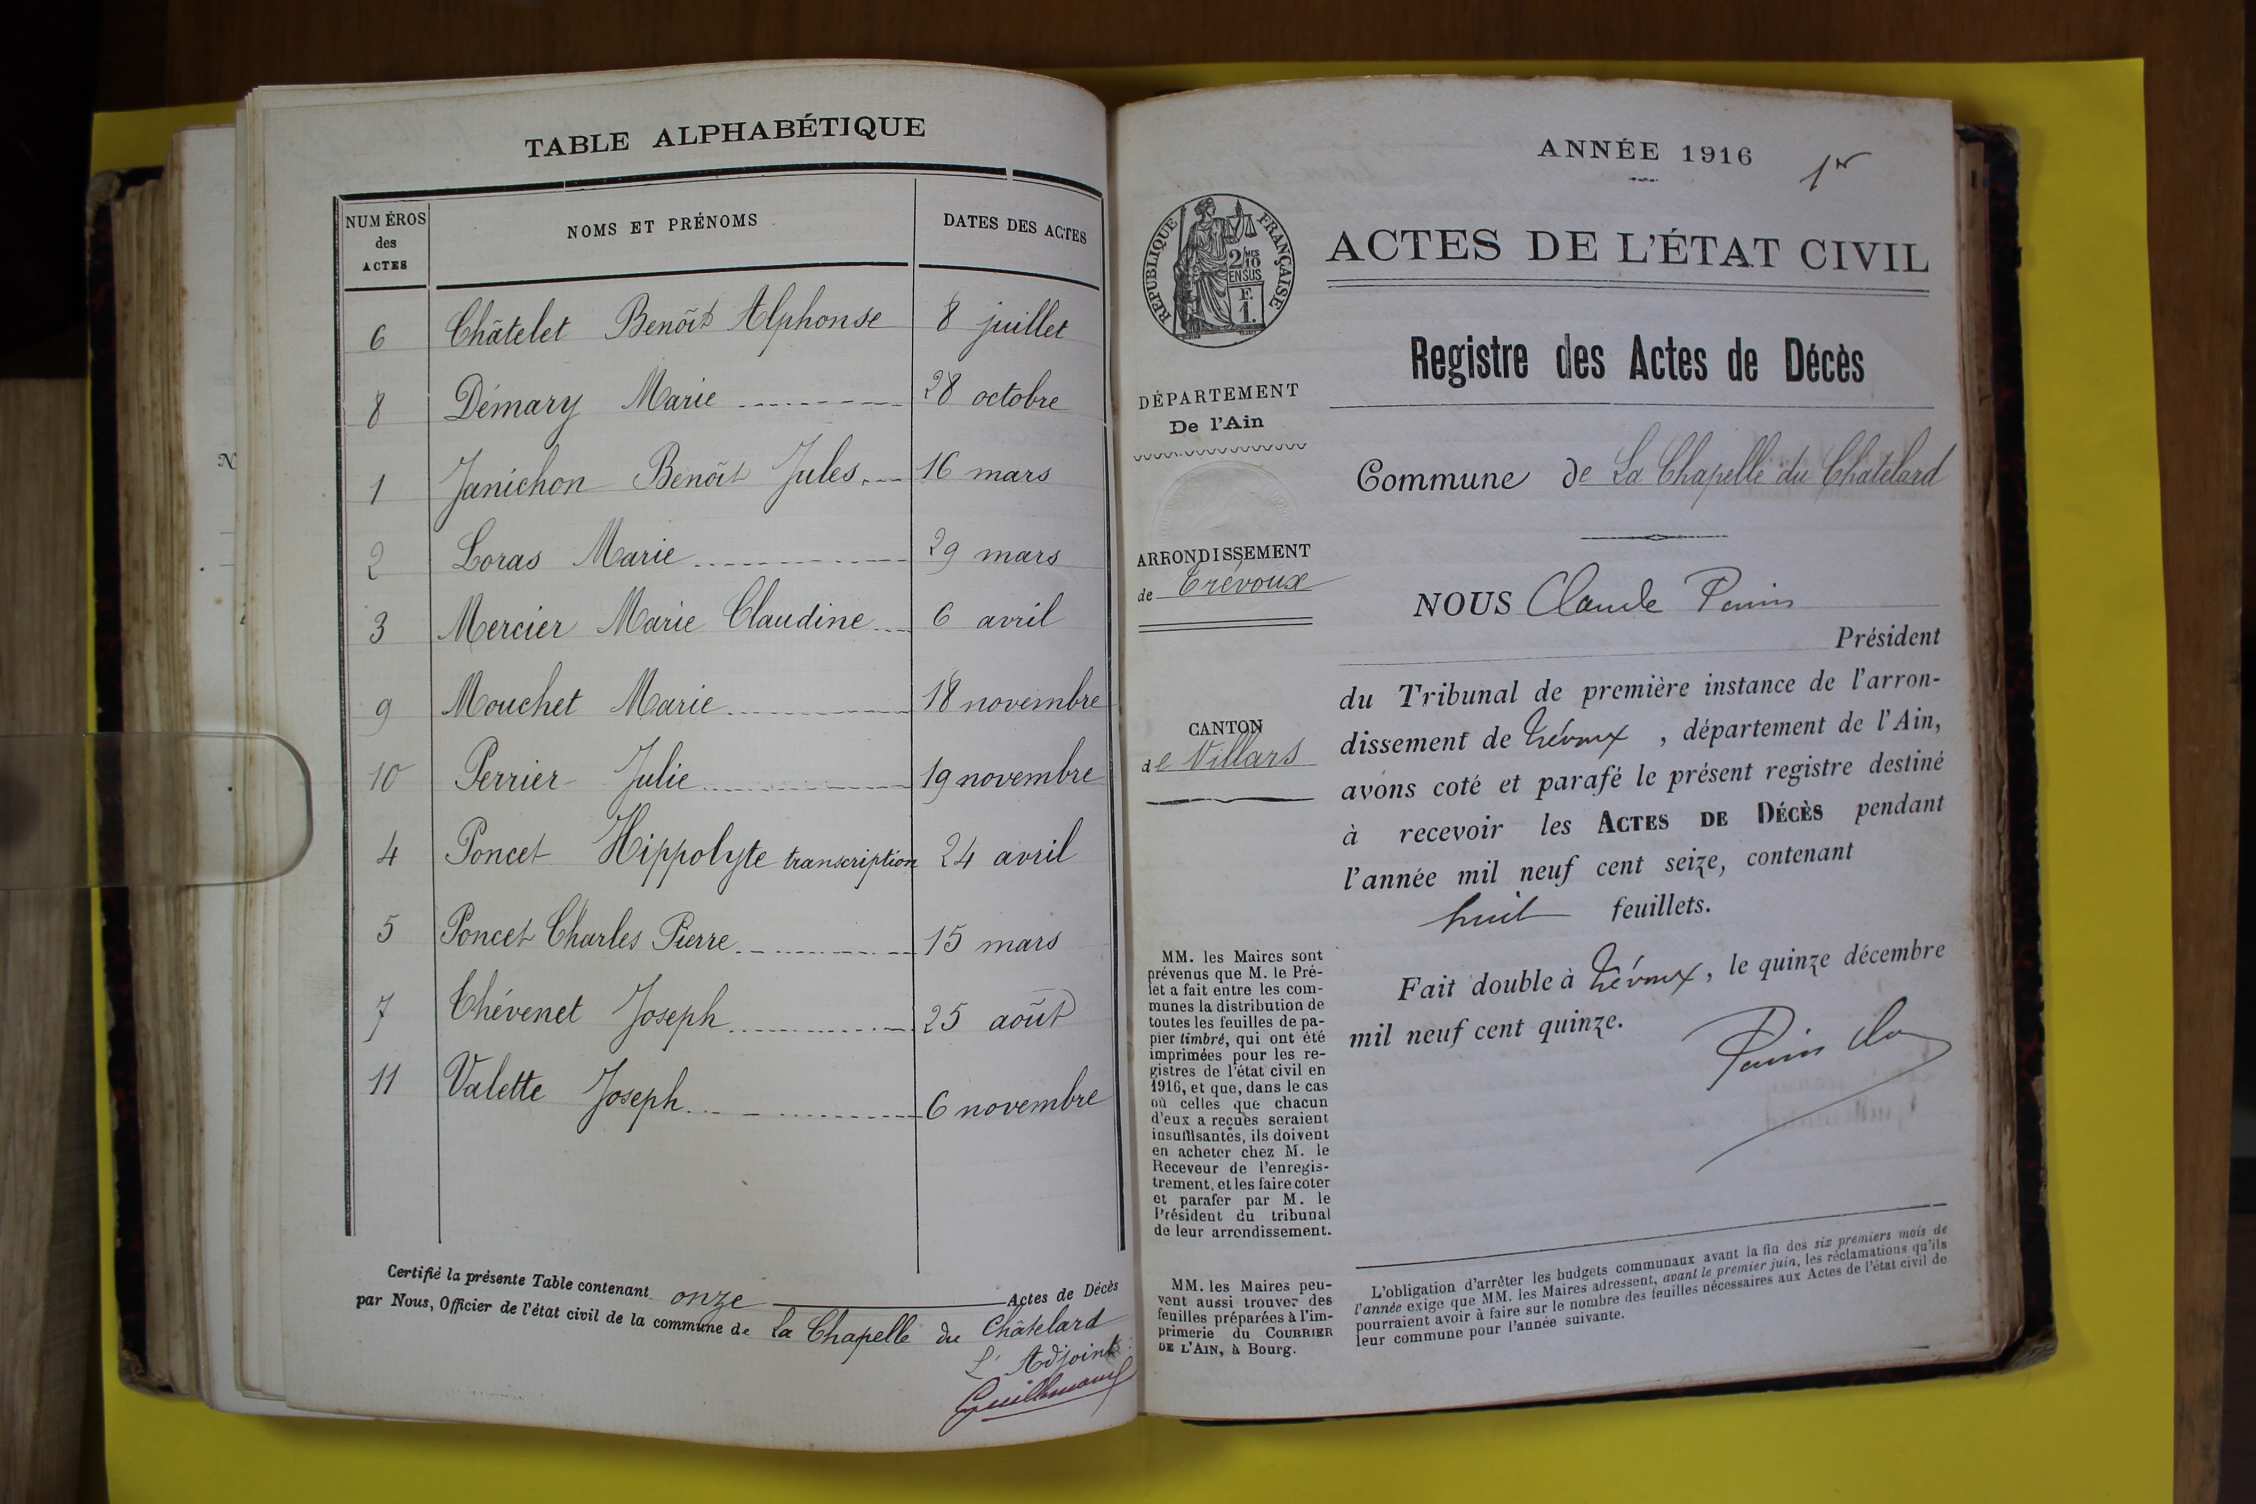 TABLE ALPHABÉTIQUE
NUMÉROS des ACTES NOMS ET PRÉNOMS DATES DES ACTES
6 Châtelet Benoît Alphonse 8 juillet
8 Démary Marie 28 octobre
1 Janichon Benoît Jules 16 mars
2 Loras Marie 29 mars
3 Mercier Marie Claudine 6 avril
9 Mouchet Marie 18 novembre
10 Perrier Julie 19 novembre
4 Poncet Hippolyte transcription 24 avril
5 Poncet Charles Pierre 15 mars
7 Thévenet Joseph 25 août
11 Valette Joseph 6 novembre
Certifié la présente Table contenant onze Actes de Décès
par Nous, Officier de l'état civil de la commune de La Chapelle du Châtelard
L'Adjoint
Guillemaud
ANNÉE 1916
1er
RÉPUBLIQUE FRANÇAISE
2/10 EN SUS
F. 1.
ACTES DE L'ÉTAT CIVIL
Registre des Actes de Décès
DÉPARTEMENT
De l'Ain
Commune de La Chapelle du Châtelard
ARRONDISSEMENT
de Trévoux
CANTON
de Villars
NOUS Claude Perrin
Président
du Tribunal de première instance de l'arron-
dissement de Trévoux, département de l'Ain,
avons coté et parafé le présent registre destiné
à recevoir les ACTES DE DÉCÈS pendant
l'année mil neuf cent seize, contenant
huit feuillets.
Fait double à Trévoux, le quinze décembre
mil neuf cent quinze.
Perrin
MM. les Maires sont
prévenus que M. le Pré-
fet a fait entre les com-
munes la distribution de
toutes les feuilles de pa-
pier timbré, qui ont été
imprimées pour les re-
gistres de l'état civil en
1916, et que, dans le cas
où celles que chacun
d'eux a reçues seraient
insuffisantes, ils doivent
en acheter chez M. le
Receveur de l'enregis-
trement, et les faire coter
et parafer par M. le
Président du tribunal
de leur arrondissement.
MM. les Maires peu-
vent aussi trouver des
feuilles préparées à l'im-
primerie du COURRIER
DE L'AIN, à Bourg.
L'obligation d'arrêter les budgets communaux avant la fin des six premiers mois de
l'année exige que MM. les Maires adressent, avant le premier juin, les réclamations qu'ils
pourraient avoir à faire sur le nombre des feuilles nécessaires aux Actes de l'état civil de
leur commune pour l'année suivante.